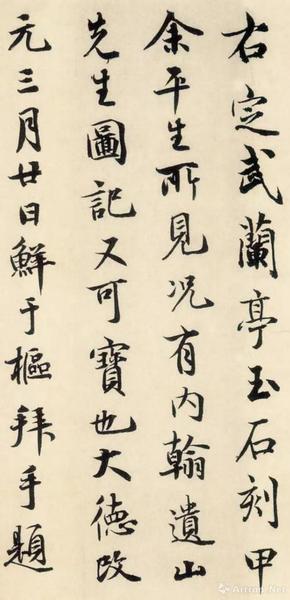 右定武蘭亭玉石刻甲
余平生所見況有内翰遺山
先生圖記又可寶也大德改
元三月廿日鮮于樞拜手題